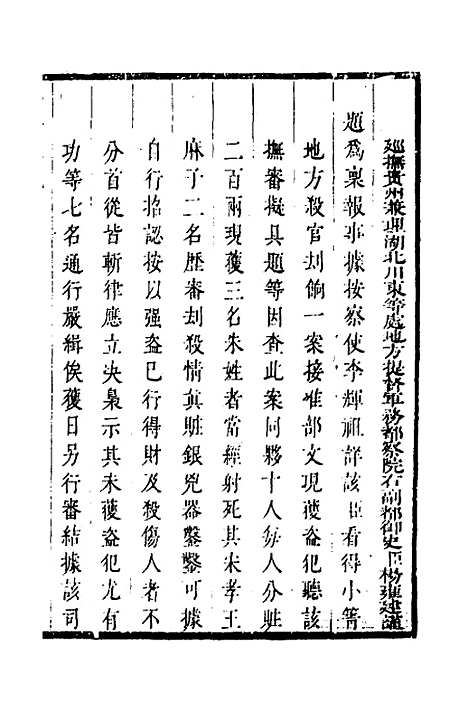 巡撫貴州兼理湖北川東等處地方提督軍務都察院右副都御史臣楊雍建謹
題為稟報事據按察使李輝祖詳該臣看得小箐
地方殺官刦餉一案接准部文現獲盜犯聽該
撫審擬具題等因查此案同夥十人每人分賍
二百兩現獲三名朱姓者當經射死其朱孝王
麻子二名歷審刦殺情眞賍銀兇器鑿鑿可據
自行招認按以强盜已行得財及殺傷人者不
分首從皆斬律應立決梟示其未獲盜犯尤有
功等七名通行嚴緝俟獲日另行審結據該司